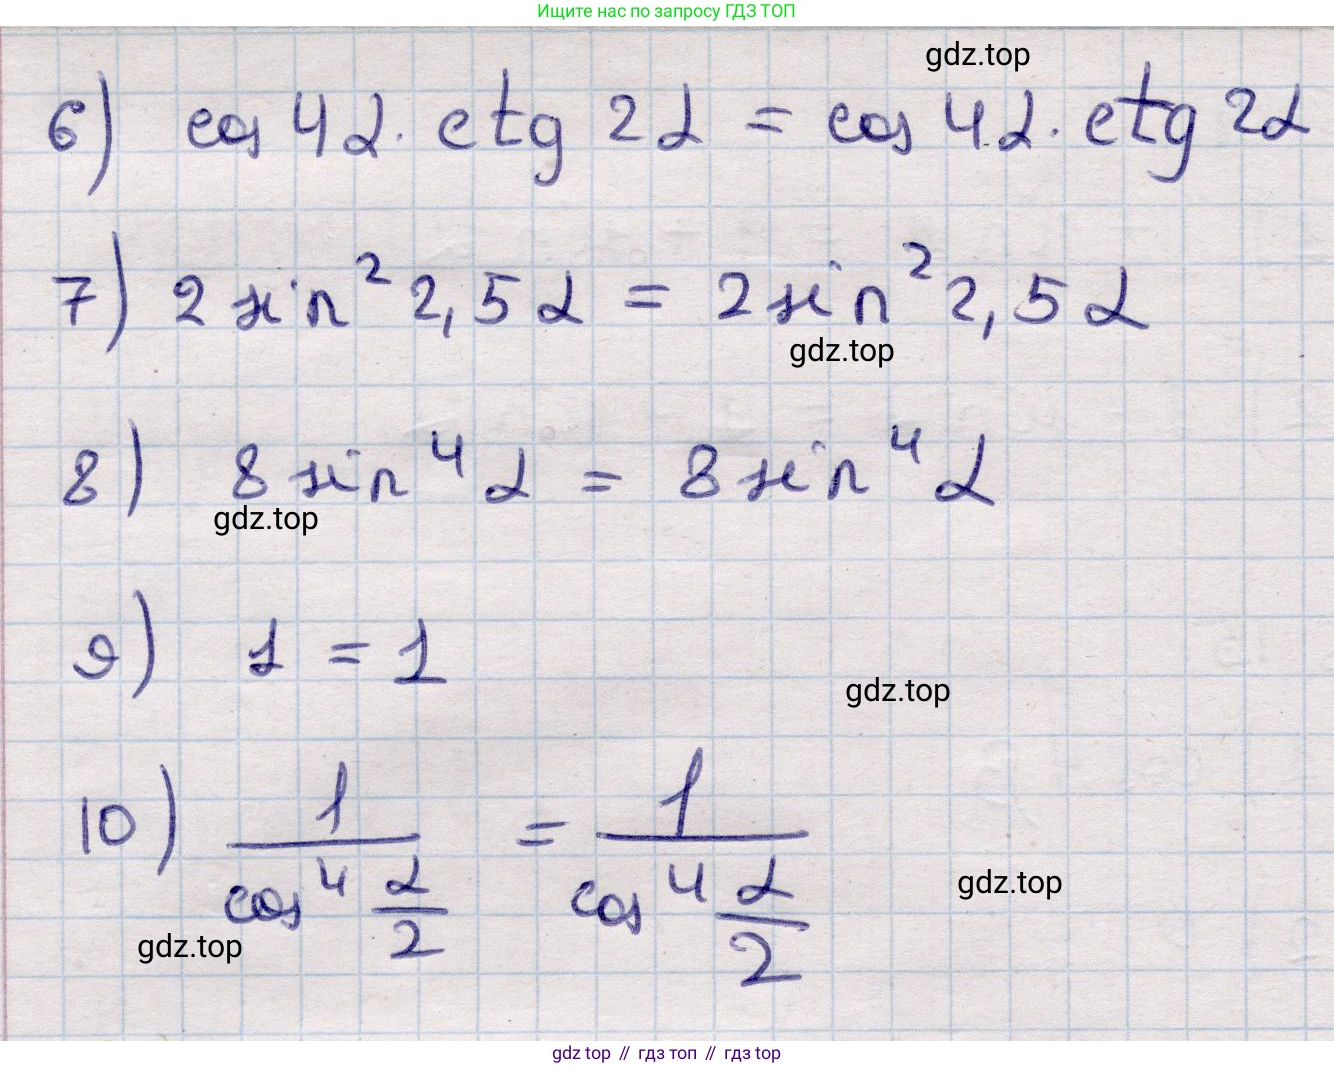 Ищите нас по запросу ГДЗ ТОП
gdz.top
6) cos 4α · ctg 2α = cos 4α · ctg 2α
7) 2 sin² 2,5α = 2 sin² 2,5α
gdz.top
8) 8 sin⁴ α = 8 sin⁴ α
gdz.top
9) 1 = 1
gdz.top
10) 1/cos⁴ α/2 = 1/cos⁴ α/2
gdz.top
gdz.top
gdz top // гдз топ // гдз top